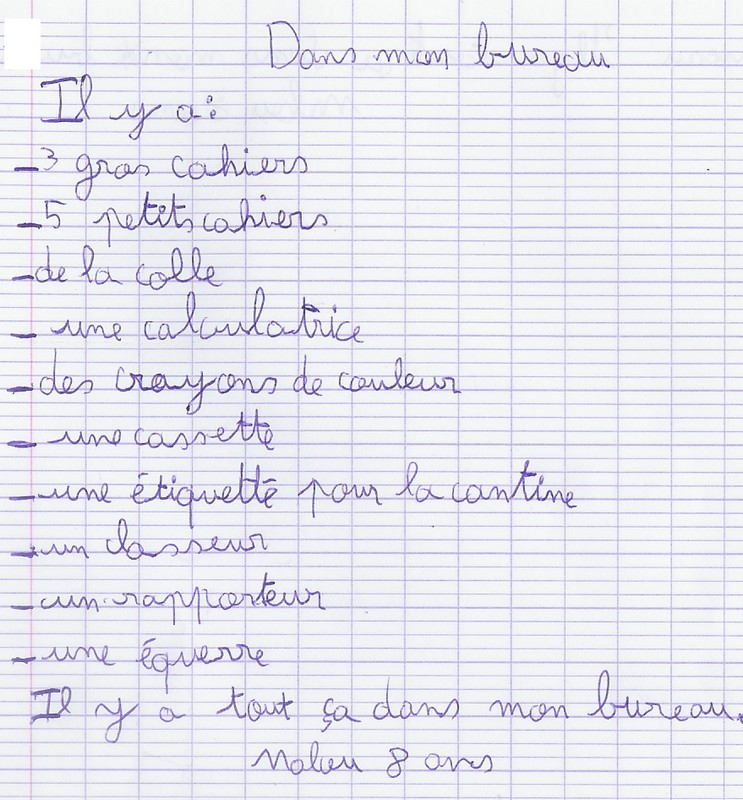 Dans mon bureau
Il y a:
- 3 gros cahiers
- 5 petits cahiers
- de la colle
- une calculatrice
- des crayons de couleur
- une cassette
- une étiquette pour la cantine
- un classeur
- un rapporteur
- une équerre
Il y a tout ça dans mon bureau.
8 ans